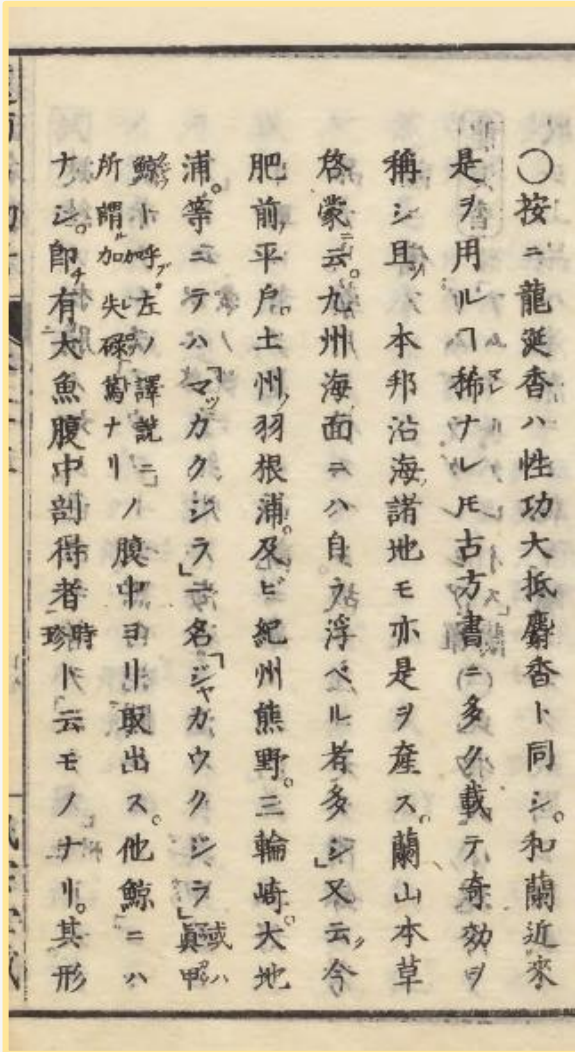 ○按ニ龍涎香ハ性功大抵麝香ト同シ。和蘭近來
是ヲ用ルヿ稀ナレ𪜈古方書ニ多ク載テ奇効ヲ
稱シ且ツ本邦沿海諸地モ亦是ヲ產ス。蘭山本草
啓蒙ニ云。九州海面ニハ自ラ浮ベル者多シ」又云ク今
肥前ノ平戶。土州ノ羽根浦。及ビ紀州熊野。三輪崎。大地
浦。等ニテハ「マツカクジラ」一名「ジヤカウクジラ」或ハ眞甲
鯨ト呼ブ左ノ譯說ニ所謂ル加失礫篤ナリノ膓中ヨリ取出ス。他鯨ニハ
ナシ。卽チ有大魚腹中剖得者時珍ト云モノナリ。其形